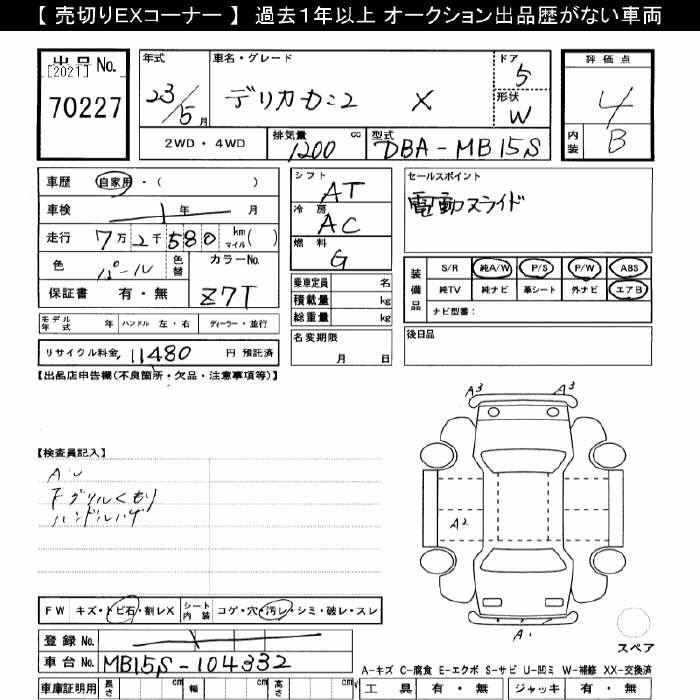 【 売切りEXコーナー 】 過去1年以上 オークション出品歴がない車両
出品 No.
[2021]
70227
年式
23/5月
車名・グレード
デリカD:2 X
ドア
5
形状
W
評価点
4
内装
B
2WD・4WD
排気量 cc
1200
型式
DBA-MB15S
車歴 自家用・( )
車検 年 月
走行 7万2千580 km マイル( )
色 パール 色替
カラーNo.
Z7T
保証書 有・無
モデル年式 年 ハンドル 左・右 ディーラー・並行
リサイクル料金 11480 円 預託済
シフト
AT
冷房
AC
燃料
G
乗車定員 名
積載量 kg
総重量 kg
名変期限
月 日
セールスポイント
電動スライド
装備品
S/R 純A/W P/S P/W ABS
純TV 純ナビ 革シート 外ナビ エアB
ナビ型番:
後日品
【出品店申告欄(不良箇所・欠品・注意事項等)】
【検査員記入】
Fグリルくもり
ハンドルハゲ
A3
A3
A2
A1
FW キズ・トビ石・割レX シート内装 コゲ・穴・汚レ・シミ・破レ・スレ
登録 No.
車台 No. MB15S-104332
スペア
A-キズ C-腐食 E-エクボ S-サビ U-凹ミ W-補修 XX-交換済
車庫証明用 長さ cm 幅 cm 高さ cm
工具 有・無 ジャッキ 有・無